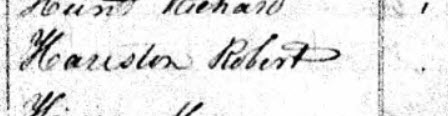 Hunt Richard
Hariston Robert